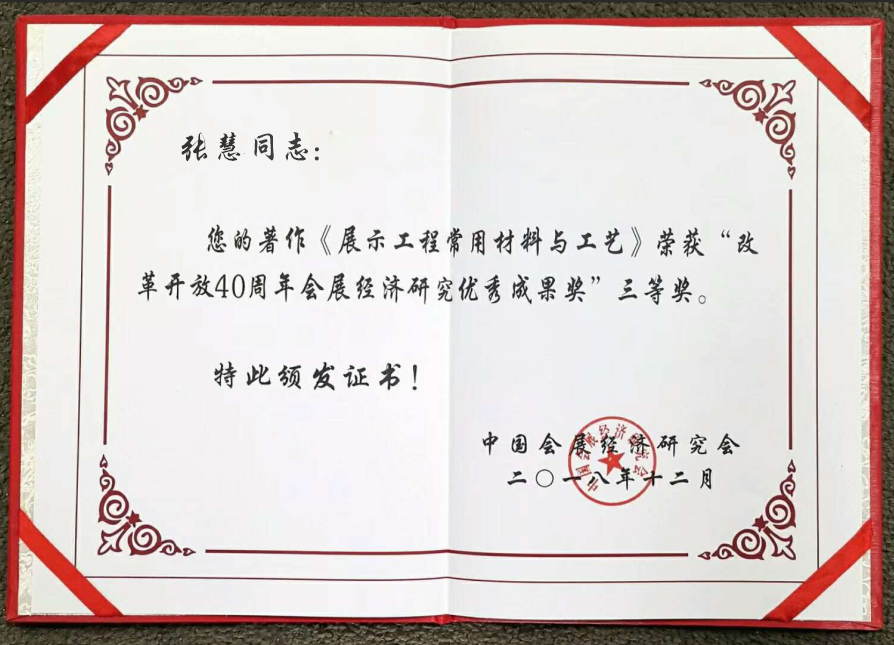 张慧同志：
您的著作《展示工程常用材料与工艺》荣获“改
革开放40周年会展经济研究优秀成果奖”三等奖。
特此颁发证书！
中国会展经济研究会
二〇一八年十二月
中国会展经济研究会